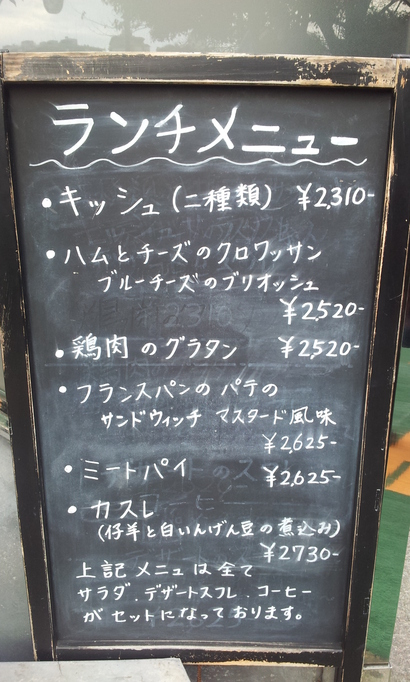 ランチメニュー
• キッシュ (二種類) ¥2,310-
• ハムとチーズのクロワッサン
ブルーチーズのブリオッシュ
¥2,520-
• 鶏肉のグラタン ¥2,520-
• フランスパンの パテの
サンドウィッチ マスタード風味
¥2,625-
• ミートパイ ¥2,625-
• カスレ
(仔羊と白いんげん豆の煮込み)
¥2730-
上記 メニュは全て
サラダ、デザートスフレ、コーヒー
がセットになっております。